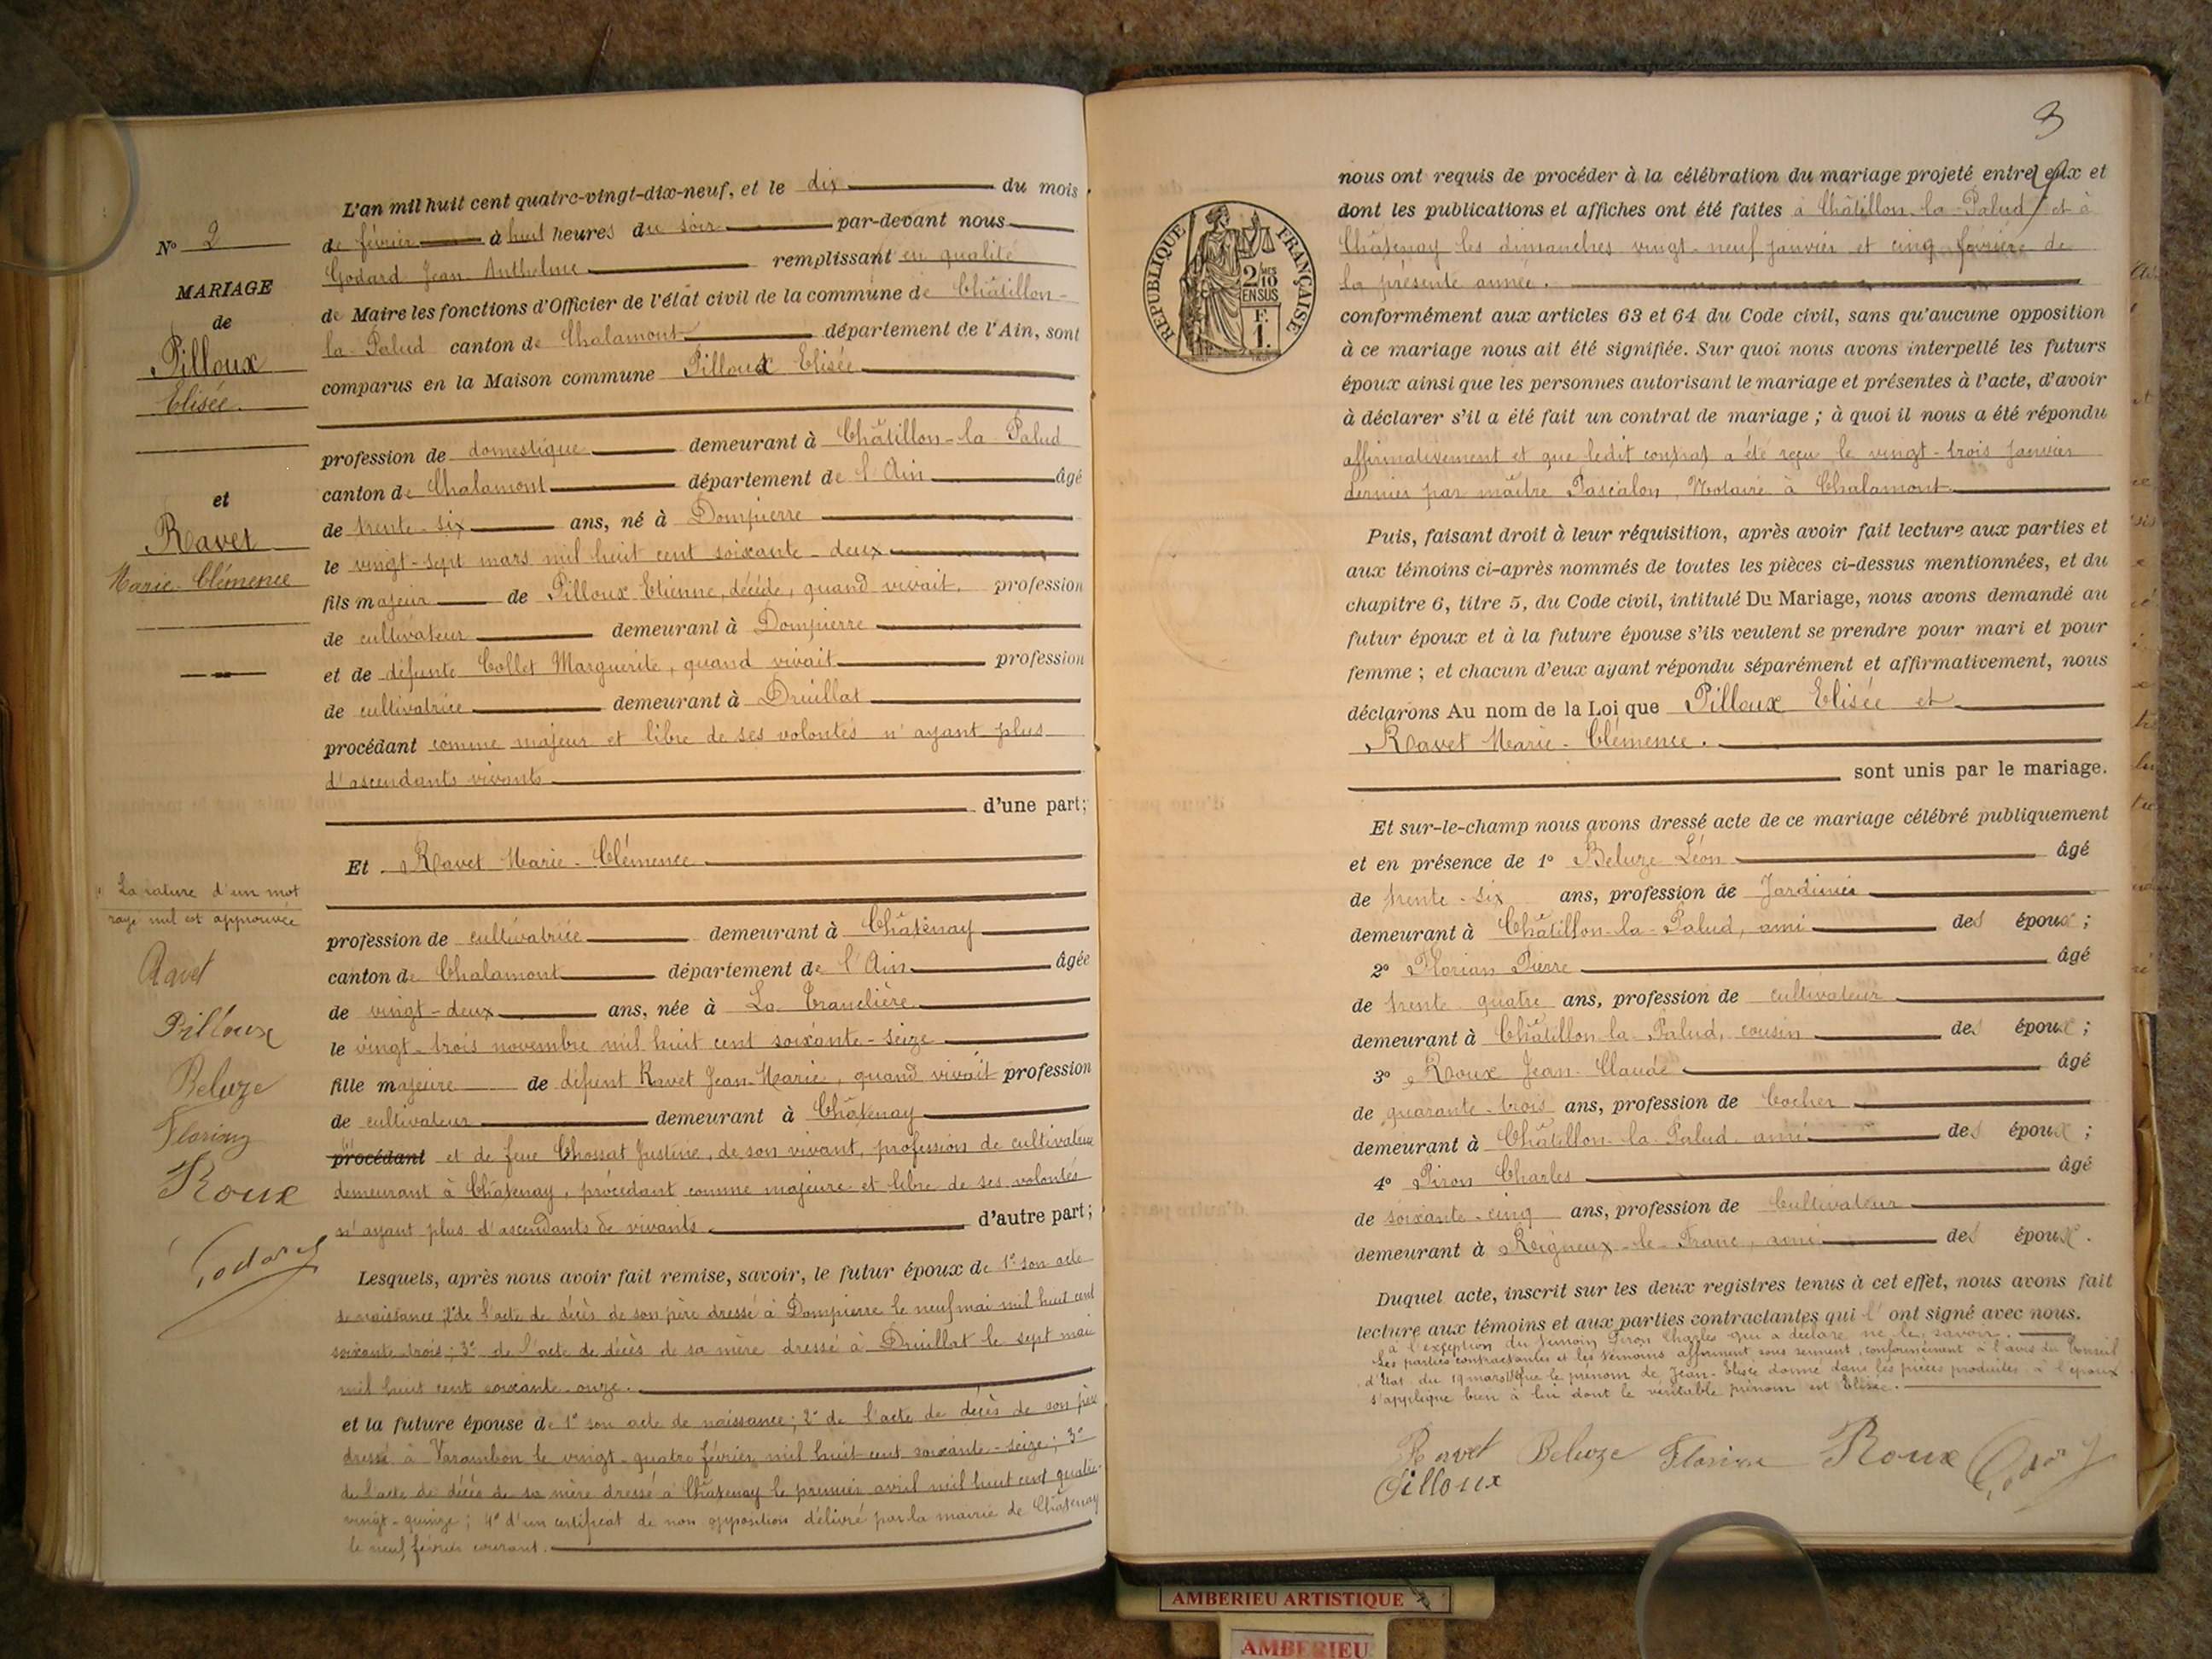 N° 2
MARIAGE
de
Pilloux
Elisée.
et
Ravet
Marie-Clémence
La rature d'un mot
rayé nul est approuvée
Ravet
Pilloux
Beluze
Florian
Roux
Godard
L'an mil huit cent quatre-vingt-dix-neuf, et le dix du mois
de février à huit heures du soir par-devant nous
Godard Jean Anthelme remplissant en qualité
de Maire les fonctions d'Officier de l'état civil de la commune de Châtillon-
la-Palud canton de Chalamont département de l'Ain, sont
comparus en la Maison commune Pilloux Elisée
profession de domestique demeurant à Châtillon-la-Palud
canton de Chalamont département de l'Ain âgé
de trente-six ans, né à Dompierre
le vingt-sept mars mil huit cent soixante-deux
fils majeur de Pilloux Etienne, décédé, quand vivait, profession
de cultivateur demeurant à Dompierre
et de défunte Collet Marguerite, quand vivait profession
de cultivatrice demeurant à Druillat
procédant comme majeur et libre de ses volontés n'ayant plus
d'ascendants vivants
d'une part;
Et Ravet Marie-Clémence
profession de cultivatrice demeurant à Châtenay
canton de Chalamont département de l'Ain âgée
de vingt-deux ans, née à La Tranclière
le vingt-trois novembre mil huit cent soixante-seize
fille majeure de défunt Ravet Jean-Marie, quand vivait profession
de cultivateur demeurant à Châtenay
procédant et de feue Chossat Justine, de son vivant, profession de cultivateur
demeurant à Châtenay, procédant comme majeure et libre de ses volontés
n'ayant plus d'ascendants de vivants d'autre part;
Lesquels, après nous avoir fait remise, savoir, le futur époux de 1° son acte
de naissance; 2° de l'acte de décès de son père dressé à Dompierre le neuf mai mil huit cent
soixante-trois; 3° de l'acte de décès de sa mère dressé à Druillat le sept mai
mil huit cent soixante-onze.
et la future épouse de 1° son acte de naissance; 2° de l'acte de décès de son père
dressé à Varambon le vingt-quatre février mil huit cent soixante-seize; 3°
de l'acte de décès de sa mère dressé à Châtenay le premier avril mil huit cent quatre-
vingt-quinze; 4° d'un certificat de non opposition délivré par la mairie de Châtenay
le neuf février courant.
3
RÉPUBLIQUE FRANÇAISE
2/10 EN SUS
F. 1.
nous ont requis de procéder à la célébration du mariage projeté entre eux et
dont les publications et affiches ont été faites à Châtillon-la-Palud et à
Châtenay les dimanches vingt-neuf janvier et cinq février de
la présente année.
conformément aux articles 63 et 64 du Code civil, sans qu'aucune opposition
à ce mariage nous ait été signifiée. Sur quoi nous avons interpellé les futurs
époux ainsi que les personnes autorisant le mariage et présentes à l'acte, d'avoir
à déclarer s'il a été fait un contrat de mariage; à quoi il nous a été répondu
affirmativement et que ledit contrat a été reçu le vingt-trois janvier
dernier par maître Pascalon, Notaire à Chalamont
Puis, faisant droit à leur réquisition, après avoir fait lecture aux parties et
aux témoins ci-après nommés de toutes les pièces ci-dessus mentionnées, et du
chapitre 6, titre 5, du Code civil, intitulé Du Mariage, nous avons demandé au
futur époux et à la future épouse s'ils veulent se prendre pour mari et pour
femme; et chacun d'eux ayant répondu séparément et affirmativement, nous
déclarons Au nom de la Loi que Pilloux Elisée et
Ravet Marie-Clémence.
sont unis par le mariage.
Et sur-le-champ nous avons dressé acte de ce mariage célébré publiquement
et en présence de 1° Beluze Léon âgé
de trente-six ans, profession de Jardinier
demeurant à Châtillon-la-Palud, ami des époux;
2° Florian Pierre âgé
de trente quatre ans, profession de cultivateur
demeurant à Châtillon-la-Palud, cousin des époux;
3° Roux Jean-Claude âgé
de quarante-trois ans, profession de Cocher
demeurant à Châtillon-la-Palud ami des époux;
4° Piron Charles âgé
de soixante-cinq ans, profession de Cultivateur
demeurant à Rigneux-le-Franc, ami des époux.
Duquel acte, inscrit sur les deux registres tenus à cet effet, nous avons fait
lecture aux témoins et aux parties contractantes qui l'ont signé avec nous.
à l'exception du témoin Piron Charles qui a déclaré ne le savoir.
Les parties contractantes et les témoins affirment sous serment, conformément à l'avis du Conseil
d'Etat du 19 mars que le prénom de Jean-Elisée donné dans les pièces produites à l'époux
s'applique bien à lui dont le véritable prénom est Elisée.
Ravet Beluze Florian Roux Godard
Pilloux
AMBERIEU ARTISTIQUE
AMBERIEU